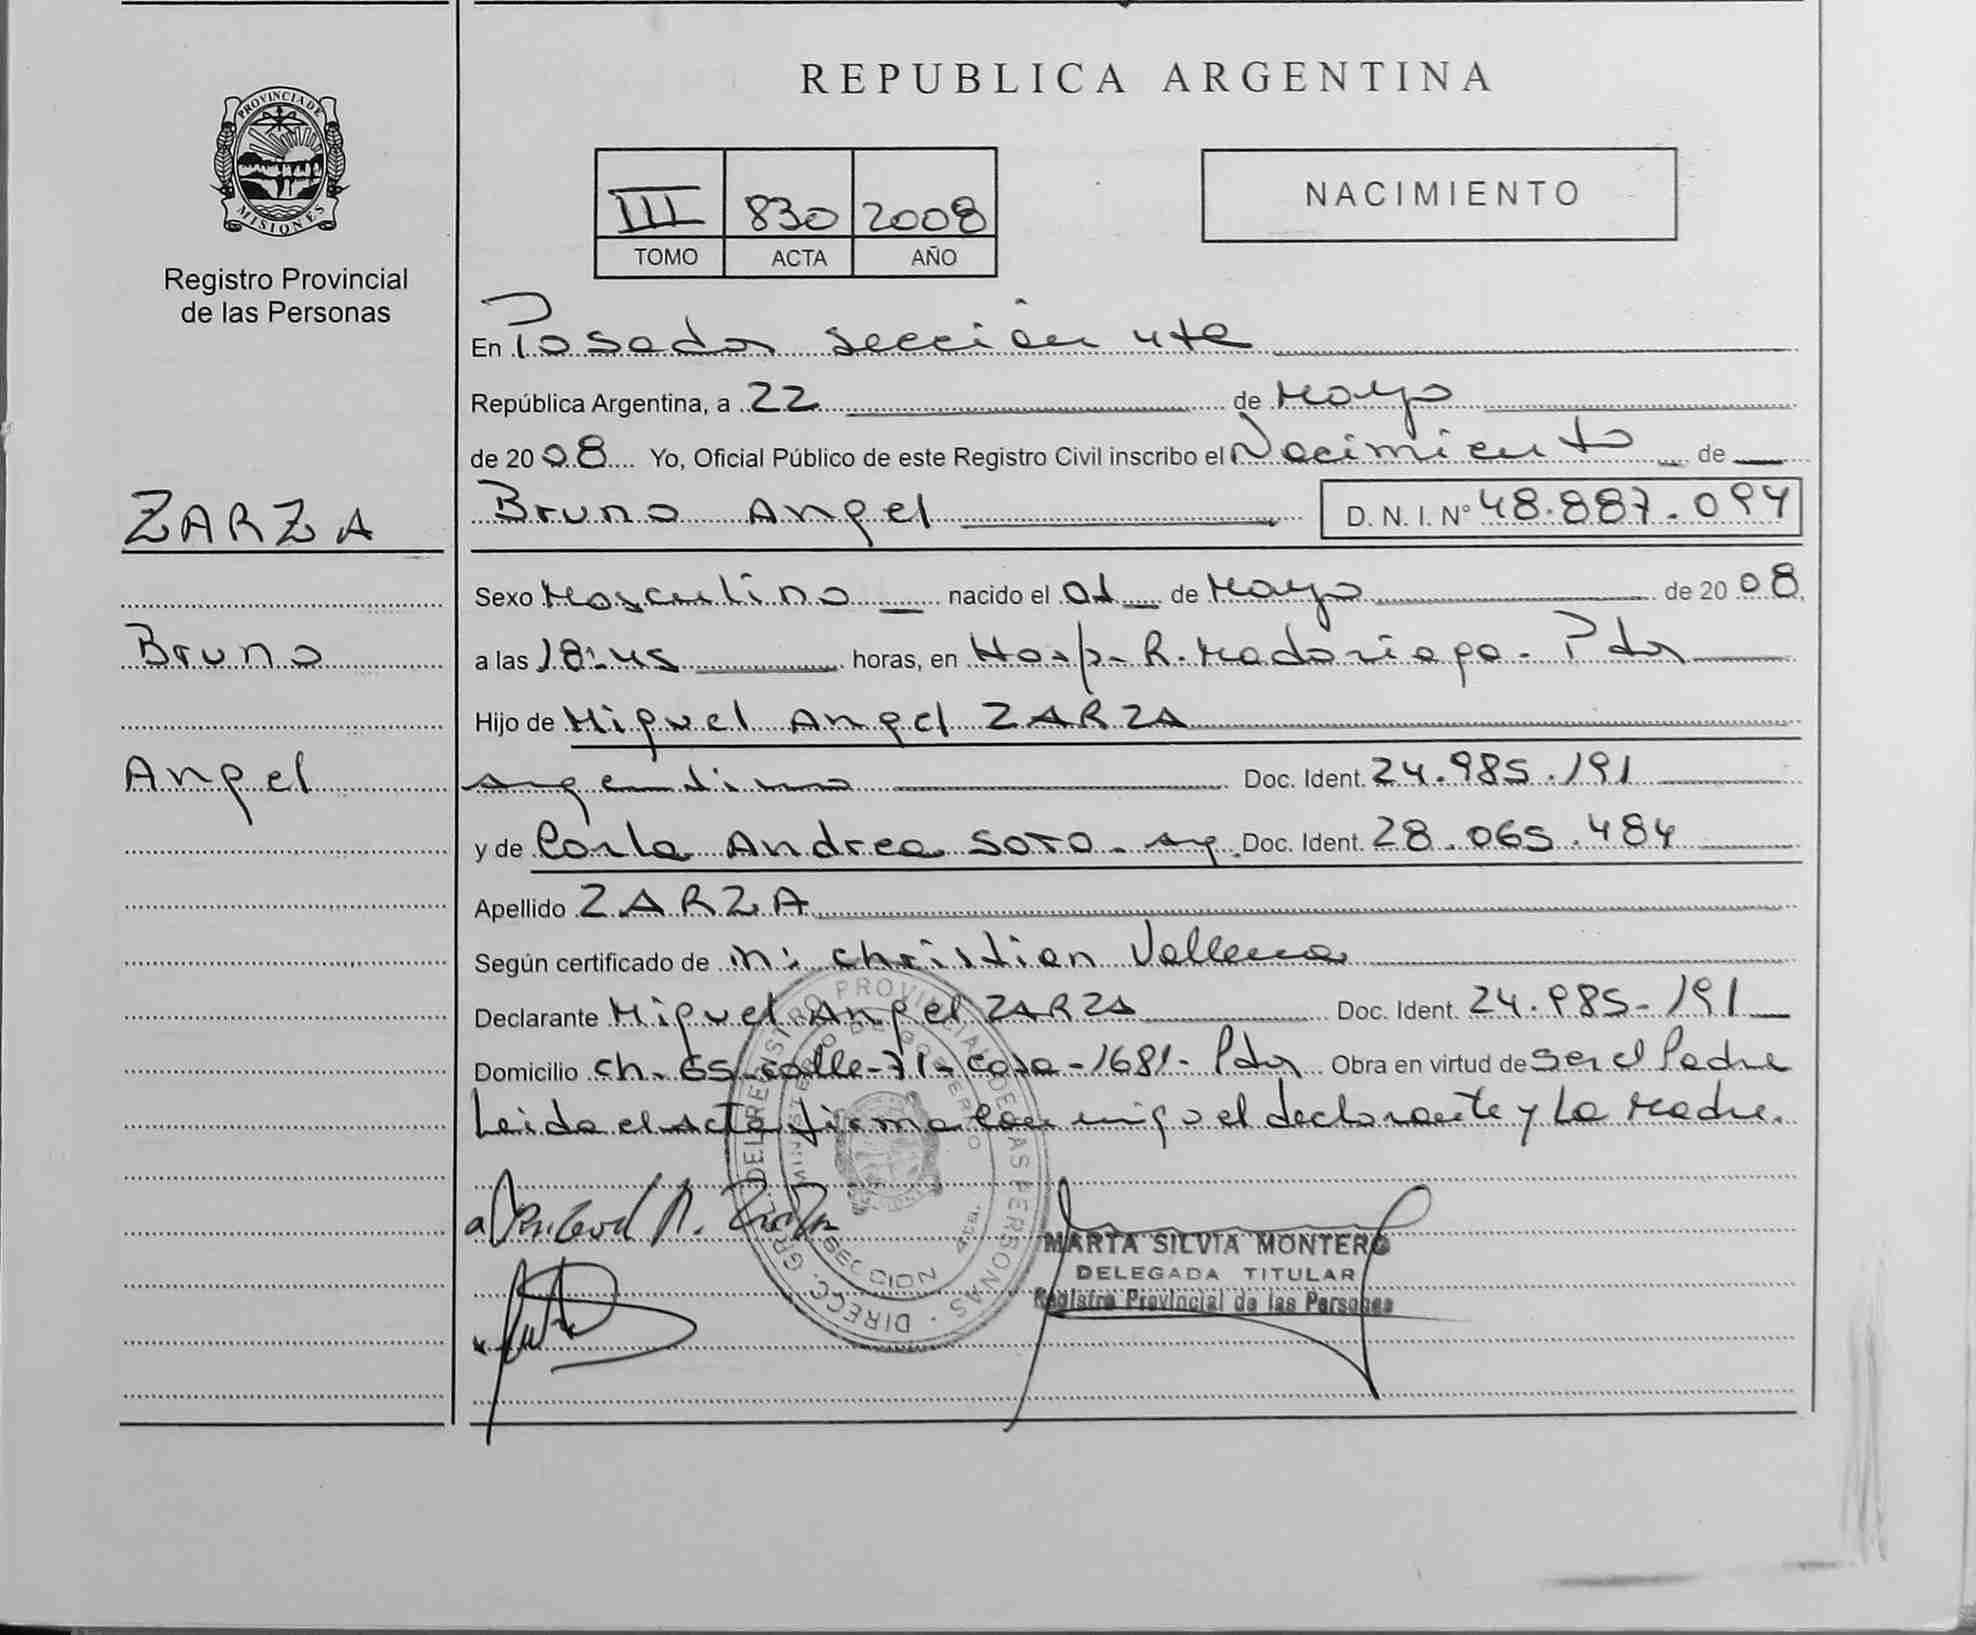 REPUBLICA ARGENTINA
PROVINCIA DE
MISIONES
Registro Provincial
de las Personas
III 830 2008
TOMO ACTA AÑO
NACIMIENTO
En Posadas sección 4ta
República Argentina, a 22 de Mayo
de 2008 Yo, Oficial Público de este Registro Civil inscribo el Nacimiento de
ZARZA
Bruno Angel D. N. I. Nº 48.887.094
Sexo Masculino nacido el 01 de Mayo de 2008
Bruno
a las 18:45 horas, en Hosp. R. Madariaga - Pdas
Hijo de Miguel Angel ZARZA
Angel
argentino Doc. Ident. 24.985.191
y de Carla Andrea SOTO - arg. Doc. Ident. 28.065.484
Apellido ZARZA
Según certificado de Christian
Declarante Miguel Angel ZARZA Doc. Ident. 24.985-191
Domicilio ch. 65 calle-71-casa-1681- Pdas Obra en virtud de ser el Padre
Leida el Acta firma con migo el declarante y La Madre.
DIRECC. GRAL. DEL REGISTRO PROVINCIAL DE LAS PERSONAS
MINISTERIO DE GOBIERNO
SECCION 4ta.
MARTA SILVIA MONTERO
DELEGADA TITULAR
Registro Provincial de las Personas